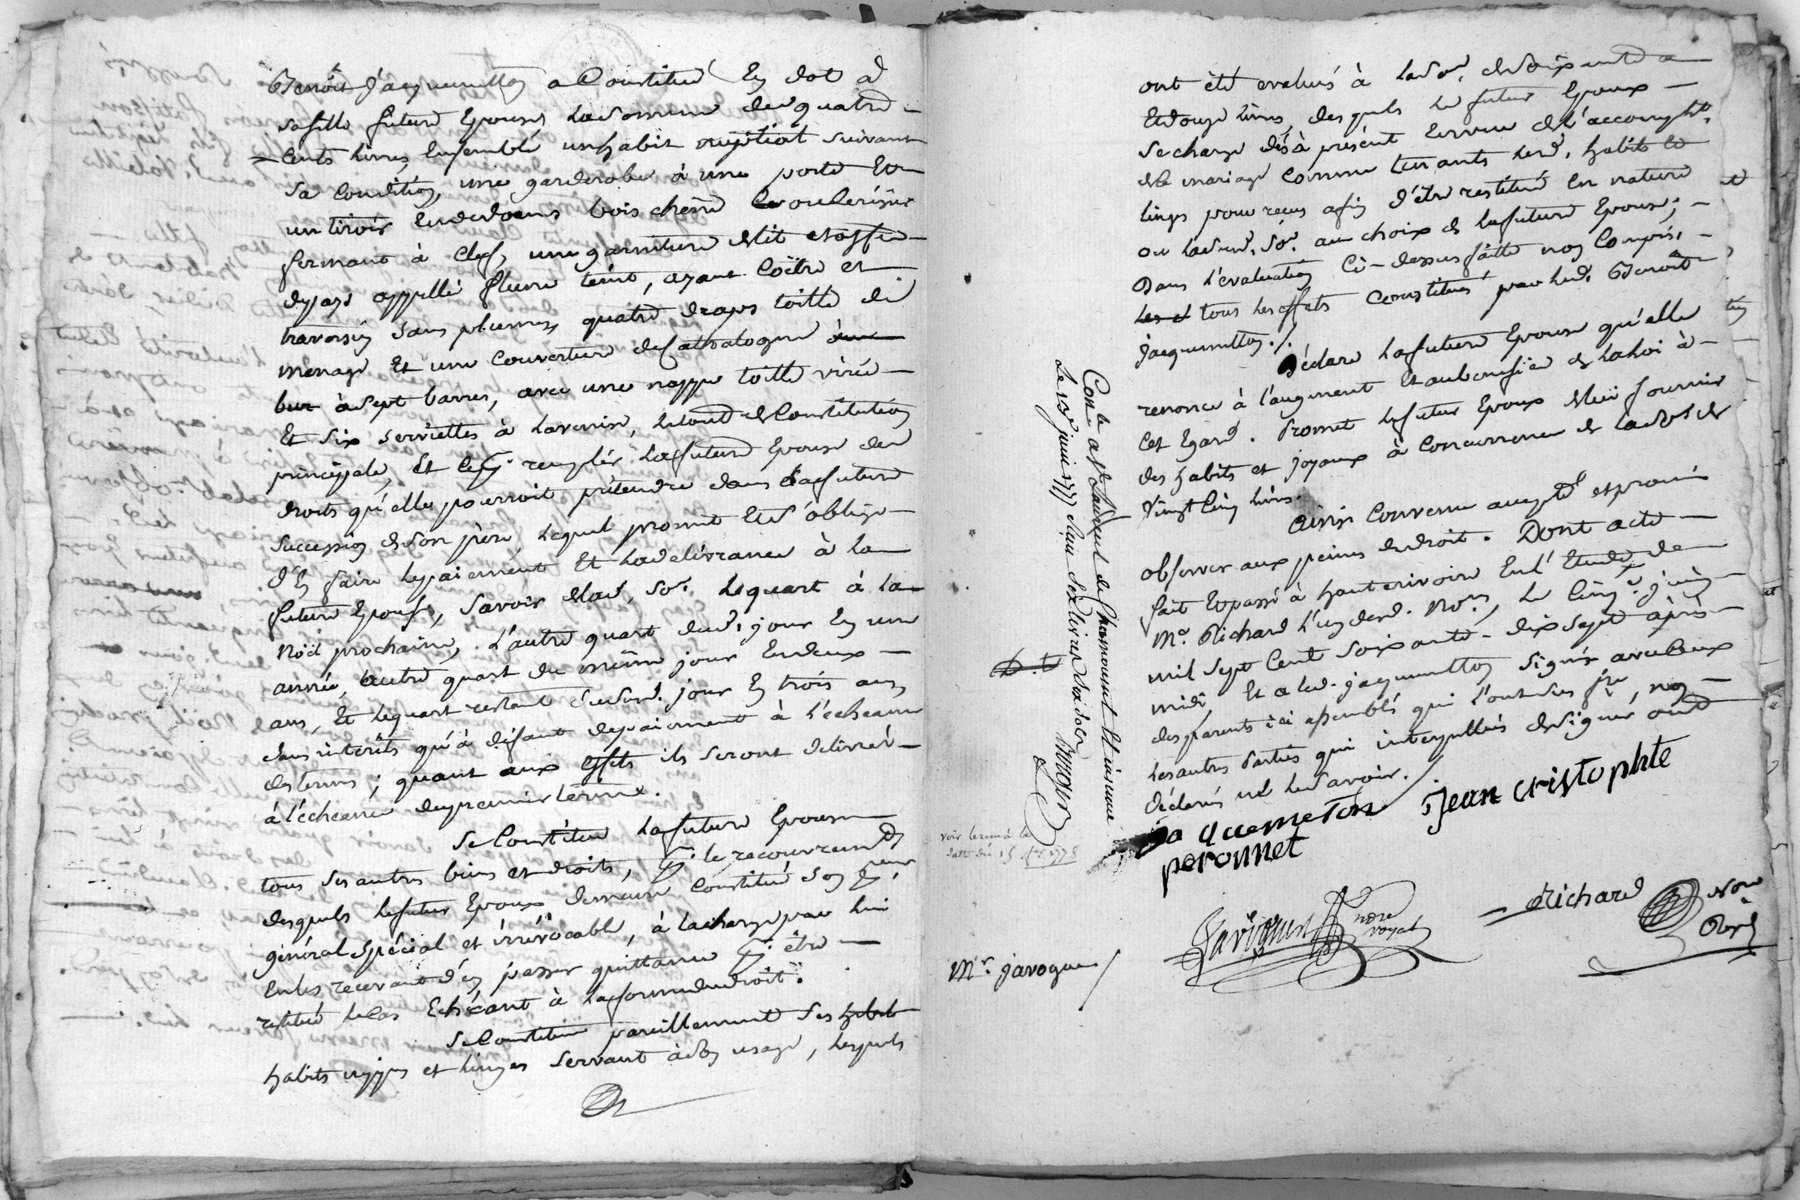 Benoît Jacquemetton a Constitué En dot a
sa fille future Epouse, la somme de quatre
Cents livres, Ensemble un habit nuptial suivant
sa Condition, une garderobe à une porte Et
un tiroir au dedans bois chêne
fermant à clef, une garniture de lit etoffe
du pays appellé fleuret teint, ayant Coëtre et
traversin sans plumes, quatre draps toille de
menage Et une Couverture de Cathalogne
à sept barres, avec une nappe toille virée
Et six serviettes à la venise, le tout de Constitution
principale, Et pour remplir la future Epouse des
droits qu'elle pourroit prétendre dans la future
succession de son père lequel promet Et s'oblige
d'En faire le paiement Et la délivrance à la
future Epouse, savoir de lad. So. le quart à la
Noël prochaine, L'autre quart dud. jour En une
année, autre quart du même jour En deux
ans, Et le quart restant dud. jour En trois ans,
sans intérêts qu'à défaut de paiement à l'échéance
des termes ; quant aux effets ils seront délivrés
à l'échéance du premier terme.
Se Constitue la future Epouse
tous ses autres biens et droits, pour le recouvrement
desquels le futur Epoux demeure Constitué son pr.eur
général spécial et irrévocable, à la charge par lui
En les recevant d'en passer quittance pour être
restitué le Cas Echéant à la forme du droit.
Se Constitue pareillement ses
habits nippes et linges servant à son usage, lesquels
ont été évalués à la So. de soixante
Et douze livres, desquels le futur Epoux
se charge dès à présent En vue de l'accomplt.
de mariage Comme tenants lesd. habits Et
linges pour reçus afin d'être restitué En nature
ou lad. So. au choix de la future Epouse ;
Dans l'évaluation Ci-dessus faitte non Compris
tous les effets Constitués par led. Benoît
Jacquemetton./.
Déclare la future Epouse qu'elle
renonce à l'augment Et au bénéfice de la loi à
Cet Egard. Promet le futur Epoux de lui fournir
des habits et joyaux à Concurrence de la So. de
Vingt Cinq livres.
Ainsi Convenu accepté et promis
observer aux peines de droit. Dont acte
fait Et passé à hauterivoire En l'Etude de
Me. Richard l'un desd. Nores, le Cinq juin
mil sept Cent soixante-dix sept après
midi, Et a led. jacquemetton signé avec Ceux
des parents ici assemblés qui l'ont sçu fre, non
les autres Parties qui interpellés de signer ont
déclaré ne le savoir./.
ja quemeton Jean cristophle
peronnet
Javogues nore royal
Richard Nore Royal
Mr. javogues
Conlé a St Laurent de Chamousset Et insinué
Le 13 juin 1777 Reçu six livres dix sols
voir le reçu à la
datte du 15 1778